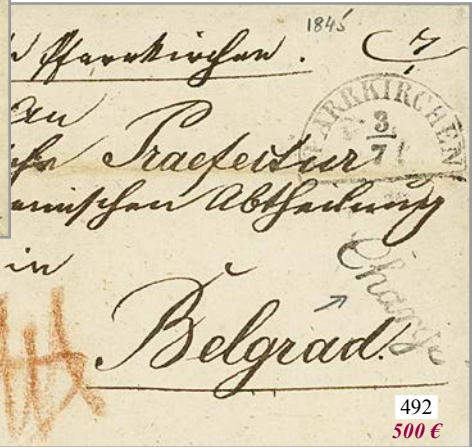 1845
Pfarrkirchen. 7
PFARRKIRCHEN
3
7
An
Praefectur
Abtheilung
in
Charge
Belgrad.
492
500 €